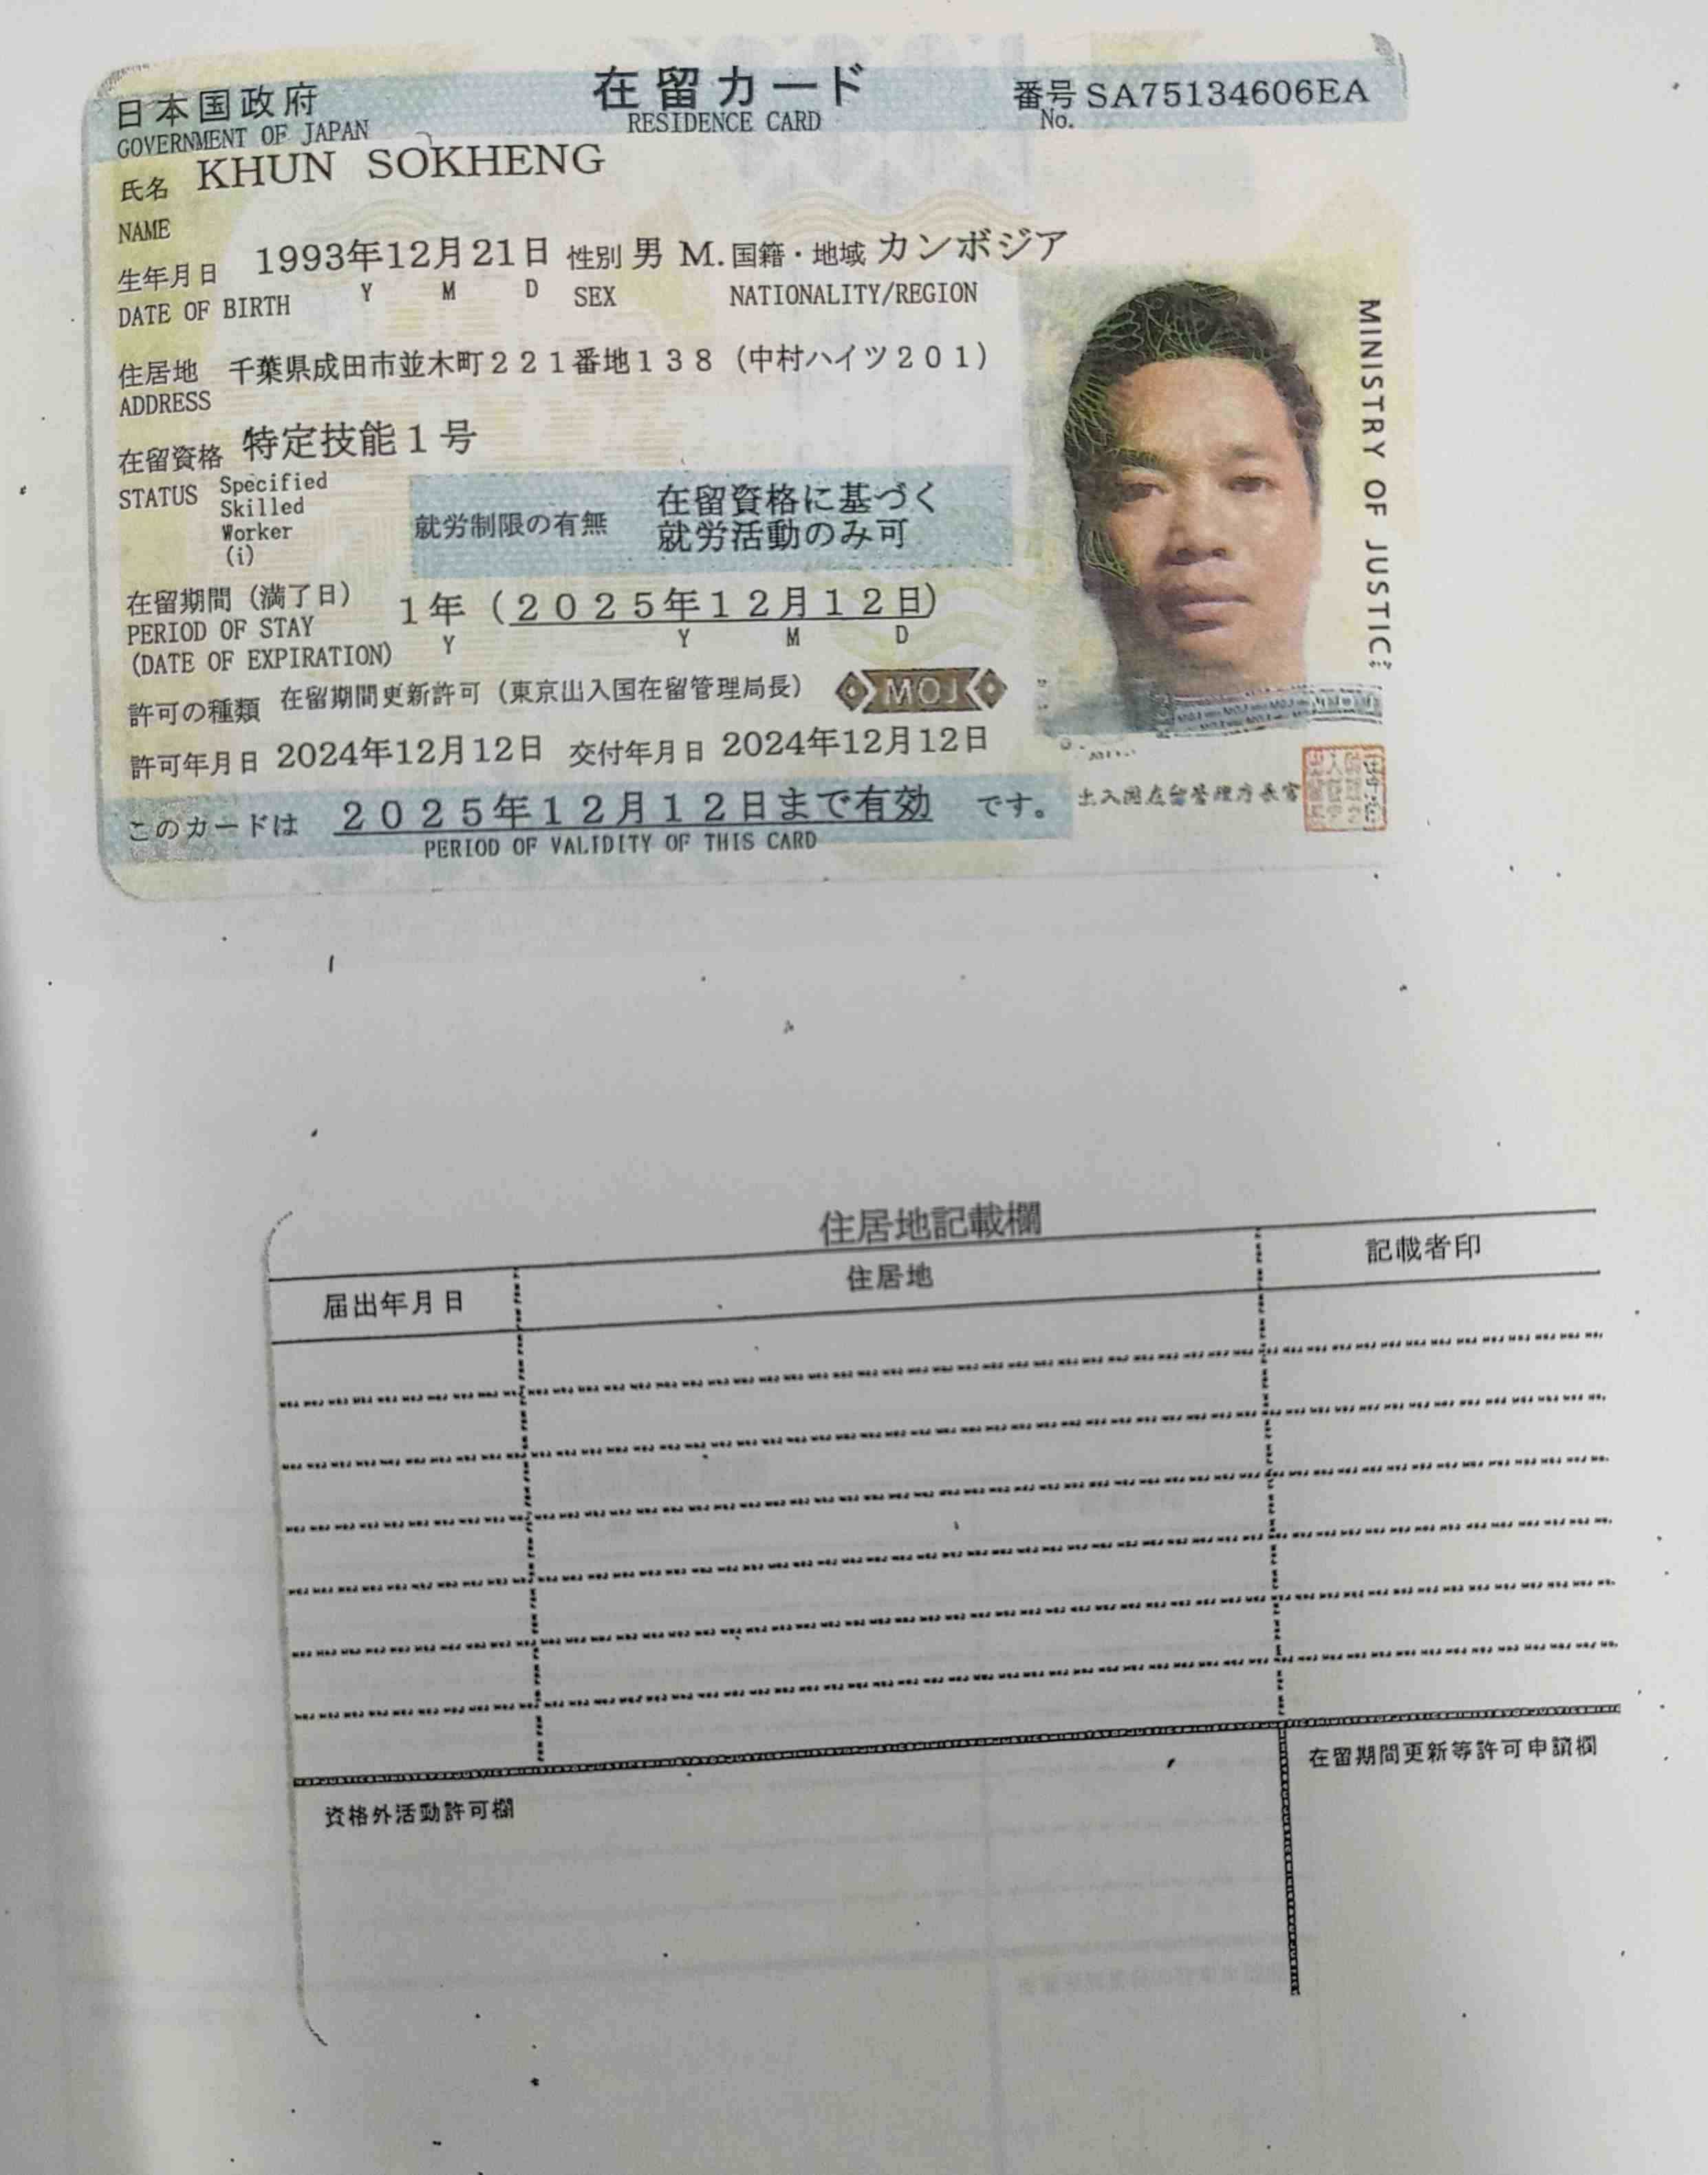 日本国政府 在留カード 番号 SA75134606EA
GOVERNMENT OF JAPAN RESIDENCE CARD No.
氏名 KHUN SOKHENG
NAME
生年月日 1993年12月21日 性別 男 M. 国籍・地域 カンボジア
DATE OF BIRTH Y M D SEX NATIONALITY/REGION
住居地 千葉県成田市並木町221番地138(中村ハイツ201)
ADDRESS
在留資格 特定技能1号
STATUS Specified
Skilled
Worker
(i)
就労制限の有無 在留資格に基づく
就労活動のみ可
在留期間(満了日) 1年(2025年12月12日)
PERIOD OF STAY Y Y M D
(DATE OF EXPIRATION)
許可の種類 在留期間更新許可(東京出入国在留管理局長) MOJ
許可年月日 2024年12月12日 交付年月日 2024年12月12日
このカードは 2025年12月12日まで有効 です。
PERIOD OF VALIDITY OF THIS CARD
MINISTRY OF JUSTICE
出入国在留管理庁長官
住居地記載欄
届出年月日 住居地 記載者印
資格外活動許可欄 在留期間更新等許可申請欄